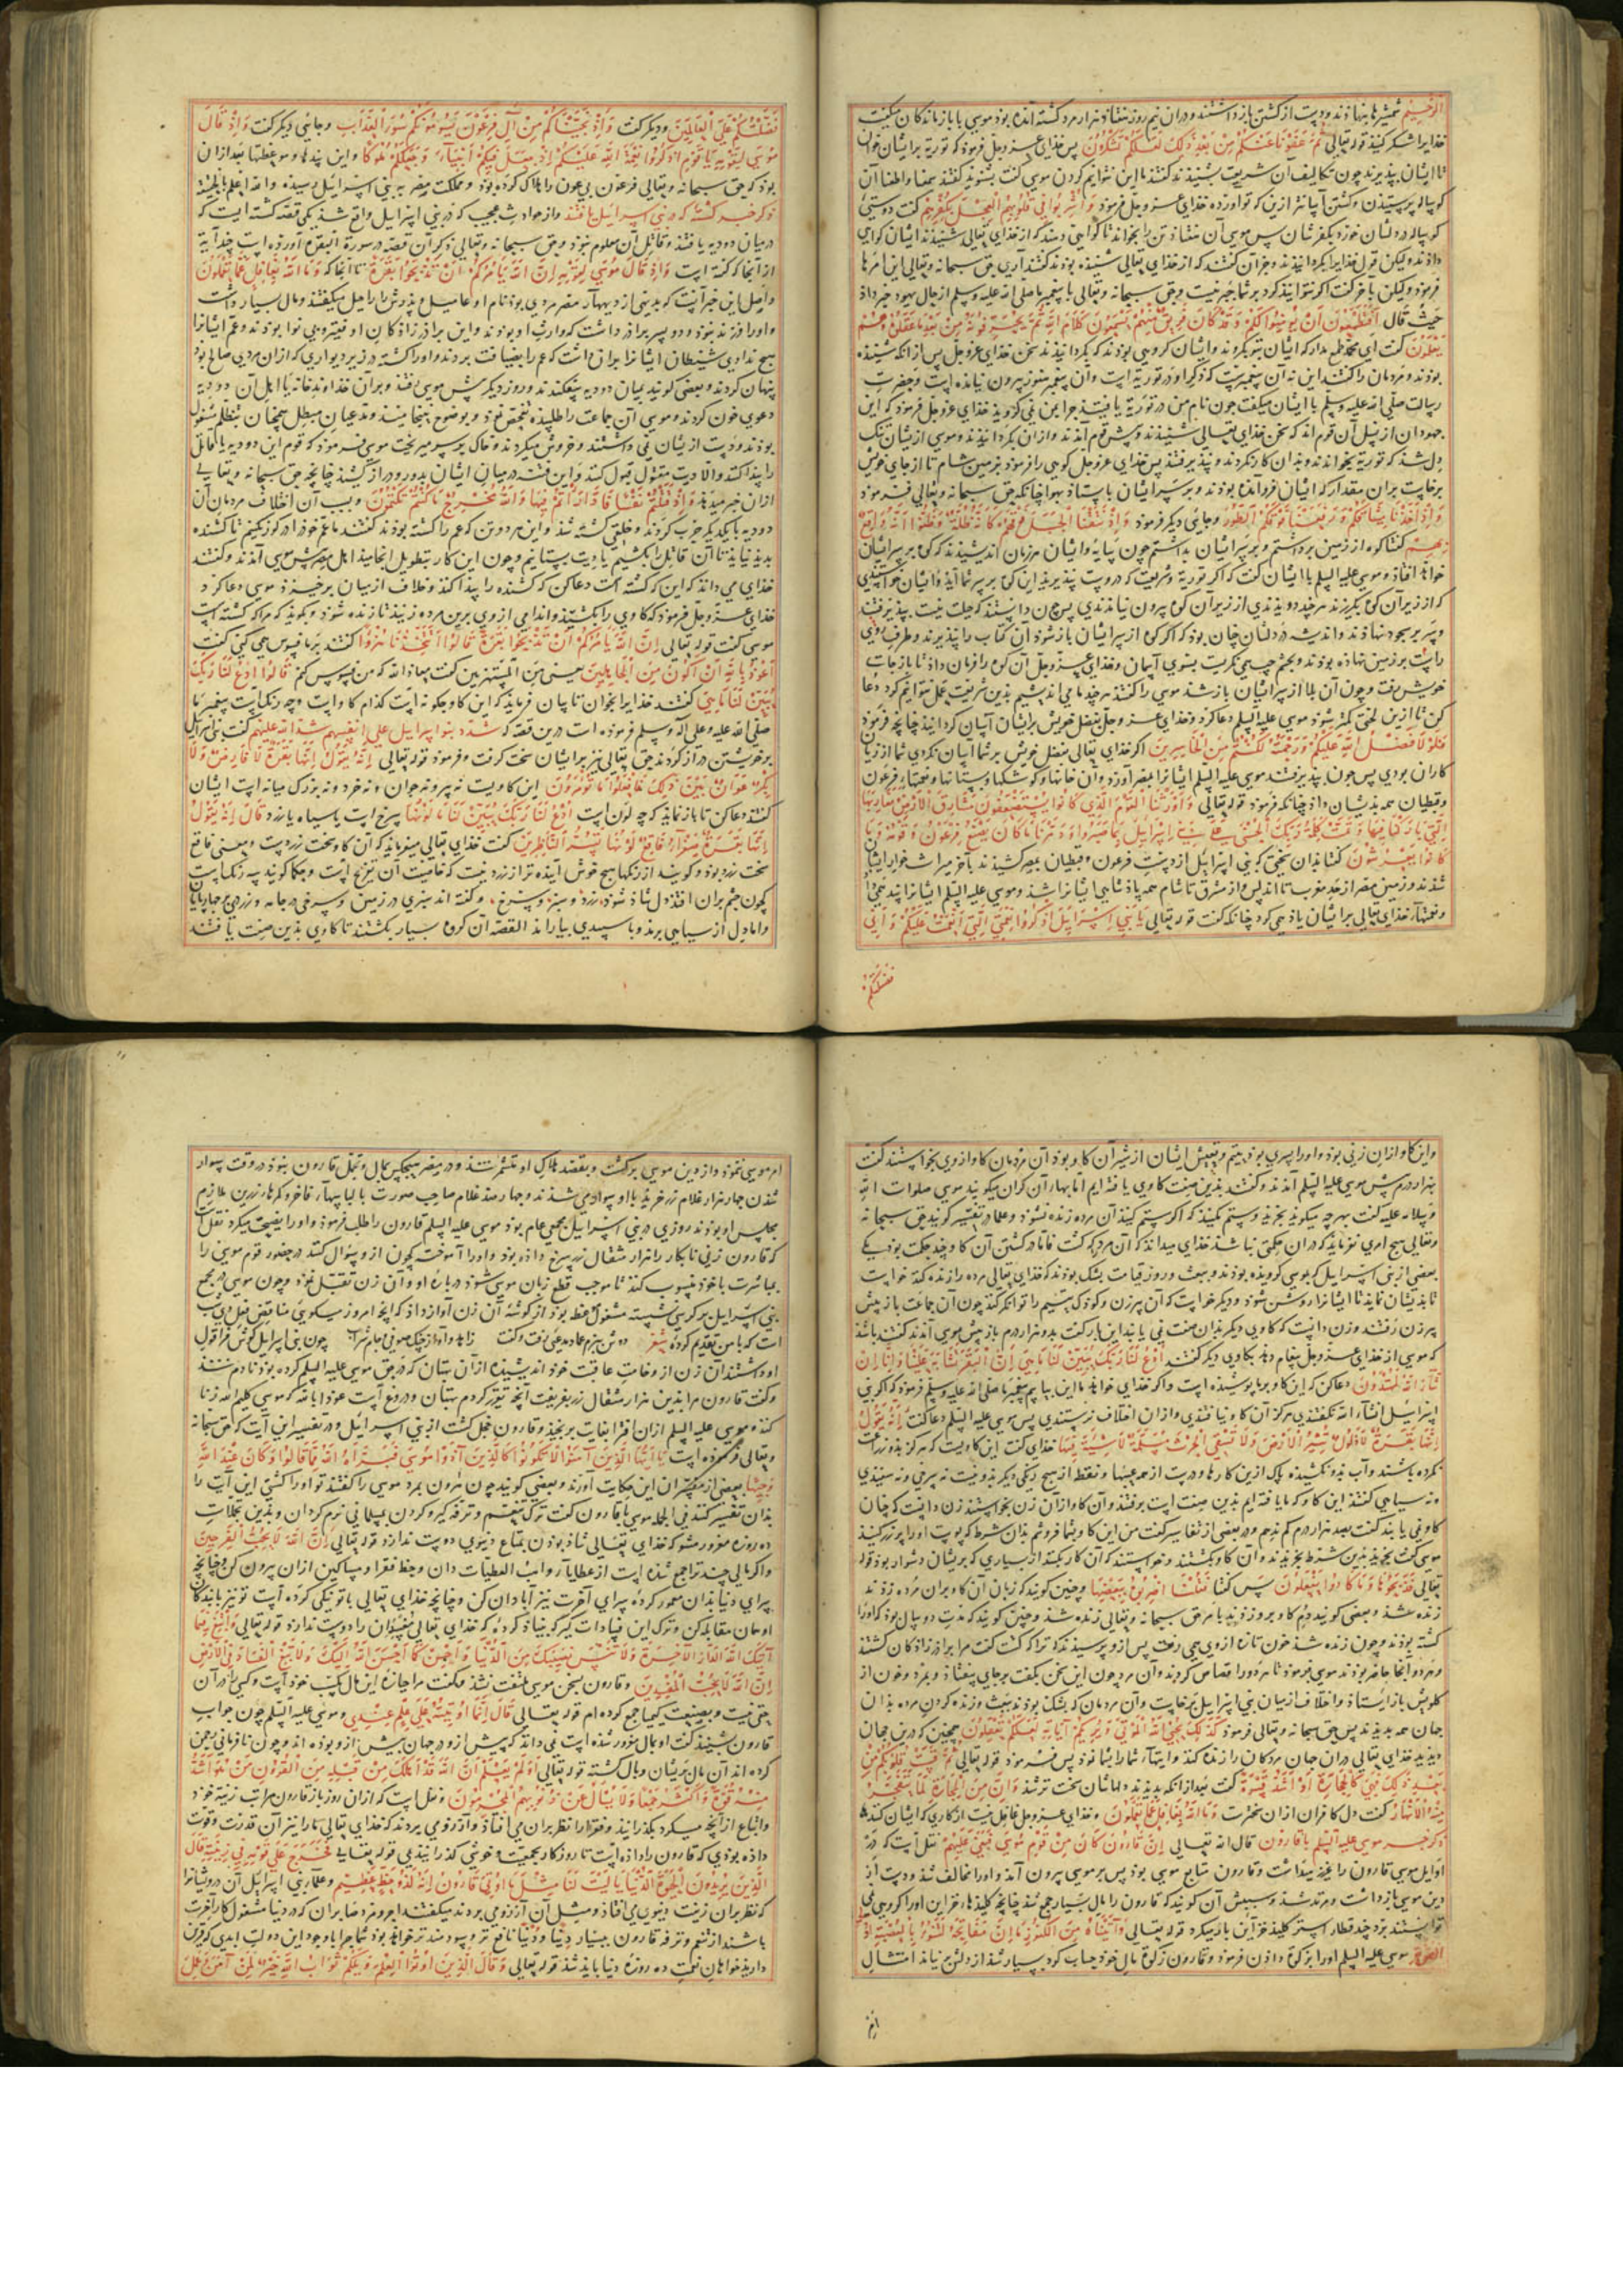 الرحیم شمشیرها بنهادند و دست از کشتن بازداشتند و در آن نیم روز هفتاد هزار مرد کشته آمده بود موسی با بازماندکان میکفت
خدایرا شکر کنید قوله تعالی ثُمَّ عَفَوْنَا عَنْكُمْ مِنْ بَعْدِ ذٰلِكَ لَعَلَّكُمْ تَشْكُرُونَ پس خدای عز و جل فرمود که توریة بر ایشان خوان
تا ایشان بپذیرند چون تکالیف آن شریعت بشنیدند کفتند ما این نتوانیم کردن موسی کفت بشنوید کفتند سمعنا و اطعنا آن
کوساله پرستیدن و کشتن آسانتر ازین که تو آورده خدای عز و جل فرمود وَأُشْرِبُوا فِي قُلُوبِهِمُ الْعِجْلَ بِكُفْرِهِمْ کفت دوستی
کوساله در دلشان خورد بکفرشان پس موسی آن هفتاد تن را بخواند تا کواهی دهند که از خدای تعالی شنیدند ایشان کواهی
دادند ولیکن قول خدایرا بکردانیدند و جز آن کفتند که از خدای تعالی شنیده بودند کفتند آری حق سبحانه و تعالی این امرها
فرمود ولیکن باخر کفت اکر نتوانید کرد بر شما چیز نیست و حق سبحانه و تعالی با پیغمبر ما صلی الله علیه وسلم از حال یهود خبر داد
حَيْثُ قَالَ أَفَتَطْمَعُونَ أَنْ يُؤْمِنُوا لَكُمْ وَقَدْ كَانَ فَرِيقٌ مِنْهُمْ يَسْمَعُونَ كَلَامَ اللَّهِ ثُمَّ يُحَرِّفُونَهُ مِنْ بَعْدِ مَا عَقَلُوهُ وَهُمْ
يَعْلَمُونَ کفت ای محمد طمع مدار که ایشان بتو بکروند و ایشان کروهی بودند که بکردانیدند سخن خدای عز و جل پس از آنکه شنیده
بودند و مردمان را کفتند این نه آن پیغمبرست که ذکر او در توریة است و آن پیغمبر هنوز بیرون نیامده است و حضرت
رسالت صلی الله علیه وسلم با ایشان میکفت چون نام من در توریة یافتید چرا بمن نمی کروید خدای عز و جل فرمود که این
جهودان از نسل آن قوم اند که سخن خدای تعالی شنیدند و پیش قوم آمدند و از آن بکردانیدند و موسی ازیشان تنک
دل شد که توریة بخواندند و بدان کار نکردند و نپذیرفتند پس خدای عز و جل کوهی را فرمود بزمین شام تا از جای خویش
برخاست بر آن مقدار که ایشان فرو آمده بودند و بر سر ایشان بایستاد بهوا چنانکه حق سبحانه و تعالی فرمود
وَإِذْ أَخَذْنَا مِيثَاقَكُمْ وَرَفَعْنَا فَوْقَكُمُ الطُّورَ و جائی دیکر فرمود وَإِذْ نَتَقْنَا الْجَبَلَ فَوْقَهُمْ كَأَنَّهُ ظُلَّةٌ وَظَنُّوا أَنَّهُ وَاقِعٌ
بِهِمْ کفتا کوه از زمین برداشتم و بر سر ایشان بداشتم چون سایه و ایشان هر زمان اندیشیدند که کوه بر سر ایشان
خواهد افتاد و موسی علیه السلم با ایشان کفت که اکر توریة و شریعت که دروست نپذیرید این کوه بر سر شما آید و ایشان خواستندی
که از زیر آن کوه بکریزند هر چند دویدندی از زیر آن کوه بیرون نیامدندی پس چون دانستند که حیلت نیست بپذیرفتند
و سر بر سجود نهادند و اندیشه در دلشان چنان بود که اکر کوه از سر ایشان باز شود آن کتاب را نپذیرند و طرف روی
راست بر زمین نهاده بودند و بچشم چپ می نکریست بسوی آسمان و خدای عز و جل آن کوه را فرمان داد تا باز جای
خویش رفت و چون آن بلا از سر ایشان باز شد موسی را کفتند هر چند ما می اندیشیم بدین شریعت عمل نتوانیم کرد دعا
کن تا ازین لختی کمتر شود موسی علیه السلم دعا کرد و خدای عز و جل بفضل خویش بر ایشان آسان کردانید چنانچه فرمود
فَلَوْلَا فَضْلُ اللَّهِ عَلَيْكُمْ وَرَحْمَتُهُ لَكُنْتُمْ مِنَ الْخَاسِرِينَ اکر خدای تعالی بفضل خویش بر شما آسان نکردی شما از زیان
کاران بودی پس چون بپذیرفتند موسی علیه السلم ایشانرا بمصر آورد و آن خانها و کوشکها و بستانها و نعمتهاء فرعون
و قبطیان همه بدیشان داد چنانکه فرمود قوله تعالی وَأَوْرَثْنَا الْقَوْمَ الَّذِينَ كَانُوا يُسْتَضْعَفُونَ مَشَارِقَ الْأَرْضِ وَمَغَارِبَهَا
الَّتِي بَارَكْنَا فِيهَا وَتَمَّتْ كَلِمَةُ رَبِّكَ الْحُسْنَى عَلَى بَنِي إِسْرَائِيلَ بِمَا صَبَرُوا وَدَمَّرْنَا مَا كَانَ يَصْنَعُ فِرْعَوْنُ وَقَوْمُهُ وَمَا
كَانُوا يَعْرِشُونَ کفتا بدان سختی که بنی اسرائیل از دست فرعون و قبطیان بمصر کشیدند باخر میراث خوار ایشان
شدند و زمین مصر از حد مغرب تا اندلس و از مشرق تا شام همه پادشاهی ایشانرا شد و موسی علیه السلم ایشانرا پند می داد
و نعمتهاء خدای تعالی بر ایشان یاد می کرد چنانکه کفت قوله تعالی يَا بَنِي إِسْرَائِيلَ اذْكُرُوا نِعْمَتِيَ الَّتِي أَنْعَمْتُ عَلَيْكُمْ وَأَنِّي
فضلتکم
فَضَّلْتُكُمْ عَلَى الْعَالَمِينَ و دیکر کفت وَإِذْ نَجَّيْنَاكُمْ مِنْ آلِ فِرْعَوْنَ يَسُومُونَكُمْ سُوءَ الْعَذَابِ و جائی دیکر کفت وَإِذْ قَالَ
مُوسَى لِقَوْمِهِ يَا قَوْمِ اذْكُرُوا نِعْمَةَ اللَّهِ عَلَيْكُمْ إِذْ جَعَلَ فِيكُمْ أَنْبِيَاءَ وَجَعَلَكُمْ مُلُوكًا و این پندها و موعظتها بعد از آن
بود که حق سبحانه و تعالی فرعون بی عون را هلاک کرده بود و مملکت مصر به بنی اسرائیل رسیده والله اعلم بالحقیقة
ذکر خبر کشته که در بنی اسرائیل یافتند و از حوادث عجیب که در بنی اسرائیل واقع شد یکی قصه کشته ایست که
در میان دو دیه یافتند و قاتل آن معلوم نبود و حق سبحانه و تعالی ذکر آن قصه در سورة البقره آورده است چند آیة
از آنجا که کفته است وَإِذْ قَالَ مُوسَى لِقَوْمِهِ إِنَّ اللَّهَ يَأْمُرُكُمْ أَنْ تَذْبَحُوا بَقَرَةً تا آنجا که وَمَا اللَّهُ بِغَافِلٍ عَمَّا تَعْمَلُونَ
و اصل این خبر آنست که بدیهی از دیههاء مصر مردی بود نام او عامیل و پدرش را راحیل میکفتند و مال بسیار داشت
و اورا فرزند نبود و دو پسر برادر داشت که وارث او بودند و این برادرزادکان او فقیر و بی نوا بودند و عم ایشانرا
هیچ ندادی شیطان ایشانرا بر آن داشت که عم را بضیافت بردند و اورا کشته در زیر دیواری که از آن مردی صالح بود
پنهان کردند و بعضی کویند بمیان دو دیه بیفکندند و روز دیکر پیش موسی رفتند و بر آن خداوند خانه یا اهل آن دو دیه
دعوی خون کردند و موسی آن جماعت را طلبیده تفحص نمود و بوضوح نینجامید و مدعیان مبطل همچنان بتظلم مشغول
بودند و دست ازیشان نمی داشتند و خروش میکردند و خاک بر سر میریخت موسی فرمود که قوم این دو دیه یا قاتل
را پیدا کنند و الا دیت مقتول قبول کنند و این فتنه در میان ایشان بدور و دراز کشید چنانچه حق سبحانه و تعالی
از آن خبر میدهد وَإِذْ قَتَلْتُمْ نَفْسًا فَادَّارَأْتُمْ فِيهَا وَاللَّهُ مُخْرِجٌ مَا كُنْتُمْ تَكْتُمُونَ و بسبب آن اختلاف مردمان آن
دو دیه با یکدیکر حرب کردند و خلقی کشته شد و این هر دو تن که عم را کشته بودند کفتند ما عم خود را در کور نکنیم تا کشنده
پدید نیاید تا آن قاتل را بکشیم یا دیت بستانیم و چون این کار بتطویل انجامید اهل مصر پیش موسی آمدند و کفتند
خدای می داند که این که کشته است دعا کن که کشنده را پیدا کند و خلاف از میان برخیزد موسی دعا کرد
خدای عز و جل فرمود که کاوی را بکشید و اندامی از وی برین مرده زنید تا زنده شود و بکوید که مرا که کشته است
موسی کفت قوله تعالی إِنَّ اللَّهَ يَأْمُرُكُمْ أَنْ تَذْبَحُوا بَقَرَةً قَالُوا أَتَتَّخِذُنَا هُزُوًا کفتند بر ما فسوس می کنی کفت
أَعُوذُ بِاللَّهِ أَنْ أَكُونَ مِنَ الْجَاهِلِينَ یعنی من المستهزئین کفت معاذ الله که من فسوس کنم قَالُوا ادْعُ لَنَا رَبَّكَ
يُبَيِّنْ لَنَا مَا هِيَ کفتند خدایرا بخوان تا بیان فرماید که این کاو چکونه است کدام کاو است و چه رنک است پیغمبر ما
صلی الله علیه و علی آله وسلم فرموده است درین قصه که شدد بنوا اسرایل علی انفسهم شدد الله علیهم کفت بنی اسرایل
بر خویشتن دراز کردند حق تعالی نیز بر ایشان سخت کرفت و فرمود قوله تعالی إِنَّهُ يَقُولُ إِنَّهَا بَقَرَةٌ لَا فَارِضٌ وَلَا
بِكْرٌ عَوَانٌ بَيْنَ ذَلِكَ فَافْعَلُوا مَا تُؤْمَرُونَ این کاویست نه پیر و نه جوان و نه خرد و نه بزرک میانه است ایشان
کفتند دعا کن تا باز نماید که چه لون است ادْعُ لَنَا رَبَّكَ يُبَيِّنْ لَنَا مَا لَوْنُهَا سرخ است یا سیاه یا زرد قَالَ إِنَّهُ يَقُولُ
إِنَّهَا بَقَرَةٌ صَفْرَاءُ فَاقِعٌ لَوْنُهَا تَسُرُّ النَّاظِرِينَ کفت خدای تعالی میفرماید که آن کاو سخت زردست و معنی فاقع
سخت زرد بود و کویند از رنکها هیچ خوش آینده تر از زرد نیست که خاصیت آن تفریح است و حکما کویند سه رنک است
که چون چشم بر آن افتد دل شاد شود زرد و سبز و سرخ و کفته اند سبزی در زمین و سرخی در جامه و زردی در چهارپایان
و اما دل از سیاهی برمد و با سپیدی بیارامد القصه آن کروه بسیار بکشتند تا کاوی بدین صفت یافتند
و این کاو از آن زنی بود و اورا پسری بود یتیم و تعیش ایشان از شیر آن کاو بود آن مردمان کاو از وی بخواستند کفت
بهزار درم پیش موسی علیه السلم آمدند و کفتند بدین صفت کاوی یافته ایم اما بهاء آن کران میکویند موسی صلوات الله
و سلامه علیه کفت بهر چه میکوید بخرید و ستم مکنید که اکر ستم کنید آن مرده زنده نشود و علما در تفسیر کویند حق سبحانه
و تعالی هیچ امری نفرماید که در آن حکمتی نباشد خدای میداند که آن مرد که کشت فاما در کشتن آن کاو چند حکمت بود یکی
بعضی از بنی اسرایل که بموسی کرویده بودند و ببعث و روز قیامت بشک بودند که خدای تعالی مرده را زنده کند خواست
تا بدیشان نماید تا ایشانرا روشن شود و دیکر خواست که آن پیرزن و کودک یتیم را توانکر کند چون آن جماعت باز پیش
پیرزن رفتند و زن دانست که کاوی دیکر بدان صفت نمی یابند این بار کفت بدو هزار درم باز پیش موسی آمدند کفتند باشد
که موسی از خدای عز و جل پیغام دهد بکاوی دیکر کفتند ادْعُ لَنَا رَبَّكَ يُبَيِّنْ لَنَا مَا هِيَ إِنَّ الْبَقَرَ تَشَابَهَ عَلَيْنَا وَإِنَّا إِنْ
شَاءَ اللَّهُ لَمُهْتَدُونَ دعا کن که این کاو بر ما پوشیده است و اکر خدای خواهد ما این بیابیم پیغمبر ما صلی الله علیه وسلم فرمود که اکر بنی
اسرائیل انشاء الله نکفتندی هرکز آن کاو نیافتندی و از آن اختلاف نرستندی پس موسی علیه السلم دعا کفت إِنَّهُ يَقُولُ
إِنَّهَا بَقَرَةٌ لَا ذَلُولٌ تُثِيرُ الْأَرْضَ وَلَا تَسْقِي الْحَرْثَ مُسَلَّمَةٌ لَا شِيَةَ فِيهَا خدای کفت این کاویست که هرکز بدو زراعت
نکرده باشند و آب بدو نکشیده پاک ازین کارها و درست از همه عیبها و نقط از هیچ رنکی دیکر بدو نیست نه سرخی و نه سفیدی
و نه سیاهی کفتند این کاو که ما یافته ایم بدین صفت است برفتند و آن کاو از آن زن بخواستند زن دانست که چنان
کاو نمی یابند کفت بصد هزار درم کم ندهم و در بعضی از تفاسیر کفت من این کاو بشما فروشم بدان شرط که پوست اورا پر زر کنید
موسی کفت بخرید بدین شرط بخریدند و آن کاو بکشتند و نخواستند که آن کار بکنند از بسیاری که بریشان دشوار بود قوله
تعالی فَذَبَحُوهَا وَمَا كَادُوا يَفْعَلُونَ پس کفتا فَقُلْنَا اضْرِبُوهُ بِبَعْضِهَا و چنین کویند که زبان آن کاو بر آن مرده زدند
زنده شد و بعضی کویند دم کاو برو زدند بامر حق سبحانه و تعالی زنده شد و چنین کویند که مدت دو سال بود که اورا
کشته بودند و چون زنده شد خون تازه از وی می رفت پس از و پرسیدند که ترا که کشت کفت مرا برادرزادکان کشتند
و هر دو آنجا حاضر بودند موسی فرمود تا هر دورا قصاص کردند و آن مرد چون این سخن بکفت بر جای بیفتاد و بمرد و خون از
کلویش بازایستاد و اختلاف از میان بنی اسرایل برخاست و آن مردمان که بشک بودند ببعث و زنده کردن مرده بدان
جهان همه بدیدند پس حق سبحانه و تعالی فرمود كَذَلِكَ يُحْيِي اللَّهُ الْمَوْتَى وَيُرِيكُمْ آيَاتِهِ لَعَلَّكُمْ تَعْقِلُونَ همچنین که درین جهان
دیدید خدای تعالی در آن جهان مردکان را زنده کند و آیتهاء شمارا بشما نمود پس فرمود قوله تعالی ثُمَّ قَسَتْ قُلُوبُكُمْ مِنْ
بَعْدِ ذَلِكَ فَهِيَ كَالْحِجَارَةِ أَوْ أَشَدُّ قَسْوَةً کفت بعد از آنکه بدیدند دلهاشان سخت تر شد وَإِنَّ مِنَ الْحِجَارَةِ لَمَا يَتَفَجَّرُ
مِنْهُ الْأَنْهَارُ کفت دل کافران از آن سخترست وَمَا اللَّهُ بِغَافِلٍ عَمَّا تَعْمَلُونَ و خدای عز و جل غافل نیست از کاری که ایشان کنند
ذکر خبر موسی علیه السلم با قارون قال الله تعالی إِنَّ قَارُونَ كَانَ مِنْ قَوْمِ مُوسَى فَبَغَى عَلَيْهِمْ نقل است که در
اوایل موسی قارون را عزیز میداشت و قارون متابع موسی بود پس بر موسی بیرون آمد و اورا مخالف شد و دست از
دین موسی بازداشت و مرتد شد و سببش آن کویند که قارون را مال بسیار جمع شد چنانچه کلیدهاء خزاین اورا کروهی نمی
توانستند برد چند قطار استر کلید خزاین بار میکرد قوله تعالی وَآتَيْنَاهُ مِنَ الْكُنُوزِ مَا إِنَّ مَفَاتِحَهُ لَتَنُوءُ بِالْعُصْبَةِ أُولِي
القوة موسی علیه السلم اورا بزکوة دادن فرمود و قارون زکوة مال خود حساب کرد بسیار شد از دلش برنیامد امتثال
امر
امر موسی ننمود و از دین موسی برکشت و بقصد هلاک او متشمر شد و در مصر هیچکس بمال و تجمل قارون نبود در وقت سوار
شدن چهار هزار غلام زرخرید با او سوار می شدند و چهار صد غلام صاحب صورت با لباسهاء فاخر و کمرهاء زرین ملازم
مجلس او بودند روزی در بنی اسرایل مجمعی عام بود موسی علیه السلم قارون را طلب فرمود و اورا نصیحت میکرد نقل است
که قارون زنی نابکار را هزار مثقال زر سرخ داده بود و اورا آموخت که چون از و سؤال کنند در حضور قوم موسی را
بمباشرت با خود منسوب کند تا موجب قطع زبان موسی شود درباره او و آن زن تقبل نمود و چون موسی در مجمع
بنی اسرایل بر کرسی نشسته مشغول وعظ بود از کوشه آن زن آواز داد که آنچه امروز میکویی مناقض فعل دوش
است که با من تقدیم کرده شعر دوش بزم عاده مدعی رفت و کفت زاهد و آواز چنک صوفی و جام شراب چون بنی اسرایل کوش فرا قول
او داشتند آن زن از وخامت عاقبت خود اندیشیده از آن بهتان که در حق موسی علیه السلم کرده بود نادم شد
و کفت قارون مرا بدین هزار مثقال زر بفریفت آنچه تقریر کردم بهتان و دروغ است عوذا بالله که موسی کلیم الله زنا
کند و موسی علیه السلم از آن افترا بغایت برنجید و قارون خجل کشت از بنی اسرائیل و در تفسیر این آیت که حق سبحانه
و تعالی فرموده است يَا أَيُّهَا الَّذِينَ آمَنُوا لَا تَكُونُوا كَالَّذِينَ آذَوْا مُوسَى فَبَرَّأَهُ اللَّهُ مِمَّا قَالُوا وَكَانَ عِنْدَ اللَّهِ
وَجِيهًا بعضی از مفسران این حکایت آورند و بعضی کویند چون هرون بمرد موسی را کفتند تو اورا کشتی این آیت را
بدان تفسیر کنند فی الجمله موسی با قارون کفت ترک تنعم و ترفه کیر و کردن بسیلیمانی نرم کردان و بدین تجملات
ده روزه مغرور مشو که خدای تعالی شاد بودن بمتاع دنیوی دوست ندارد قوله تعالی إِنَّ اللَّهَ لَا يُحِبُّ الْفَرِحِينَ
و اکر مالی چند ترا جمع شده است از عطایاء واهب العطیات دان و حظ فقرا و مساکین از آن بیرون کن و چنانچه
سرای دنیا بدان معمور کرده سرای آخرت نیز آبادان کن و چنانچه خدای تعالی با تو نیکی کرده است تو نیز با بندکان
او همان مقابله کن و ترک این فسادات کیر که بنیاد کرده که خدای تعالی مفسدان را دوست ندارد قوله تعالی وَابْتَغِ فِيمَا
آتَاكَ اللَّهُ الدَّارَ الْآخِرَةَ وَلَا تَنْسَ نَصِيبَكَ مِنَ الدُّنْيَا وَأَحْسِنْ كَمَا أَحْسَنَ اللَّهُ إِلَيْكَ وَلَا تَبْغِ الْفَسَادَ فِي الْأَرْضِ
إِنَّ اللَّهَ لَا يُحِبُّ الْمُفْسِدِينَ و قارون بسخن موسی ملتفت نشد و کفت مرا چندین این مال کسب خود است و کسی را در آن
حقی نیست و بصنعت کیمیا جمع کرده ام قوله تعالی قَالَ إِنَّمَا أُوتِيتُهُ عَلَى عِلْمٍ عِنْدِي و موسی علیه السلم چون جواب
قارون بشنید کفت او بمال مغرور شده است نمی داند که پیش از و در جهان بیش از و بوده اند و چون نافرمانی رحمن
کرده اند آن مال بریشان وبال کشته قوله تعالی أَوَلَمْ يَعْلَمْ أَنَّ اللَّهَ قَدْ أَهْلَكَ مِنْ قَبْلِهِ مِنَ الْقُرُونِ مَنْ هُوَ أَشَدُّ
مِنْهُ قُوَّةً وَأَكْثَرُ جَمْعًا وَلَا يُسْأَلُ عَنْ ذُنُوبِهِمُ الْمُجْرِمُونَ و نقل است که از آن روز باز قارون مراتب زینة خود
و اتباع از آنچه میکرد بکذرانید و فقرا را نظر بر آن می افتاد و آرزو می بردند که خدای تعالی ما را نیز آن قدرت و قوت
داده بودی که قارون را داده است تا روزکار بجمعیت و خوشی کذرانیدیمی قوله تعالی فَخَرَجَ عَلَى قَوْمِهِ فِي زِينَتِهِ قَالَ
الَّذِينَ يُرِيدُونَ الْحَيَاةَ الدُّنْيَا يَا لَيْتَ لَنَا مِثْلَ مَا أُوتِيَ قَارُونُ إِنَّهُ لَذُو حَظٍّ عَظِيمٍ و علماء بنی اسرایل آن درویشانرا
که نظر بر آن زینت دنیوی می افتاد و مثل آن آرزو می بردند میکفتند اجر و مزد صابران که در دنیا مشغول کار آخرت
باشند از تنعم و ترفه قارون بسیار دنیا و دنیا نافع تر و سودمندتر خواهد بود شما چرا با وجود این دولت ابدی که قرین
دارید خواهان نعمت ده روزه دنیا باید شد قوله تعالی وَقَالَ الَّذِينَ أُوتُوا الْعِلْمَ وَيْلَكُمْ ثَوَابُ اللَّهِ خَيْرٌ لِمَنْ آمَنَ وَعَمِلَ